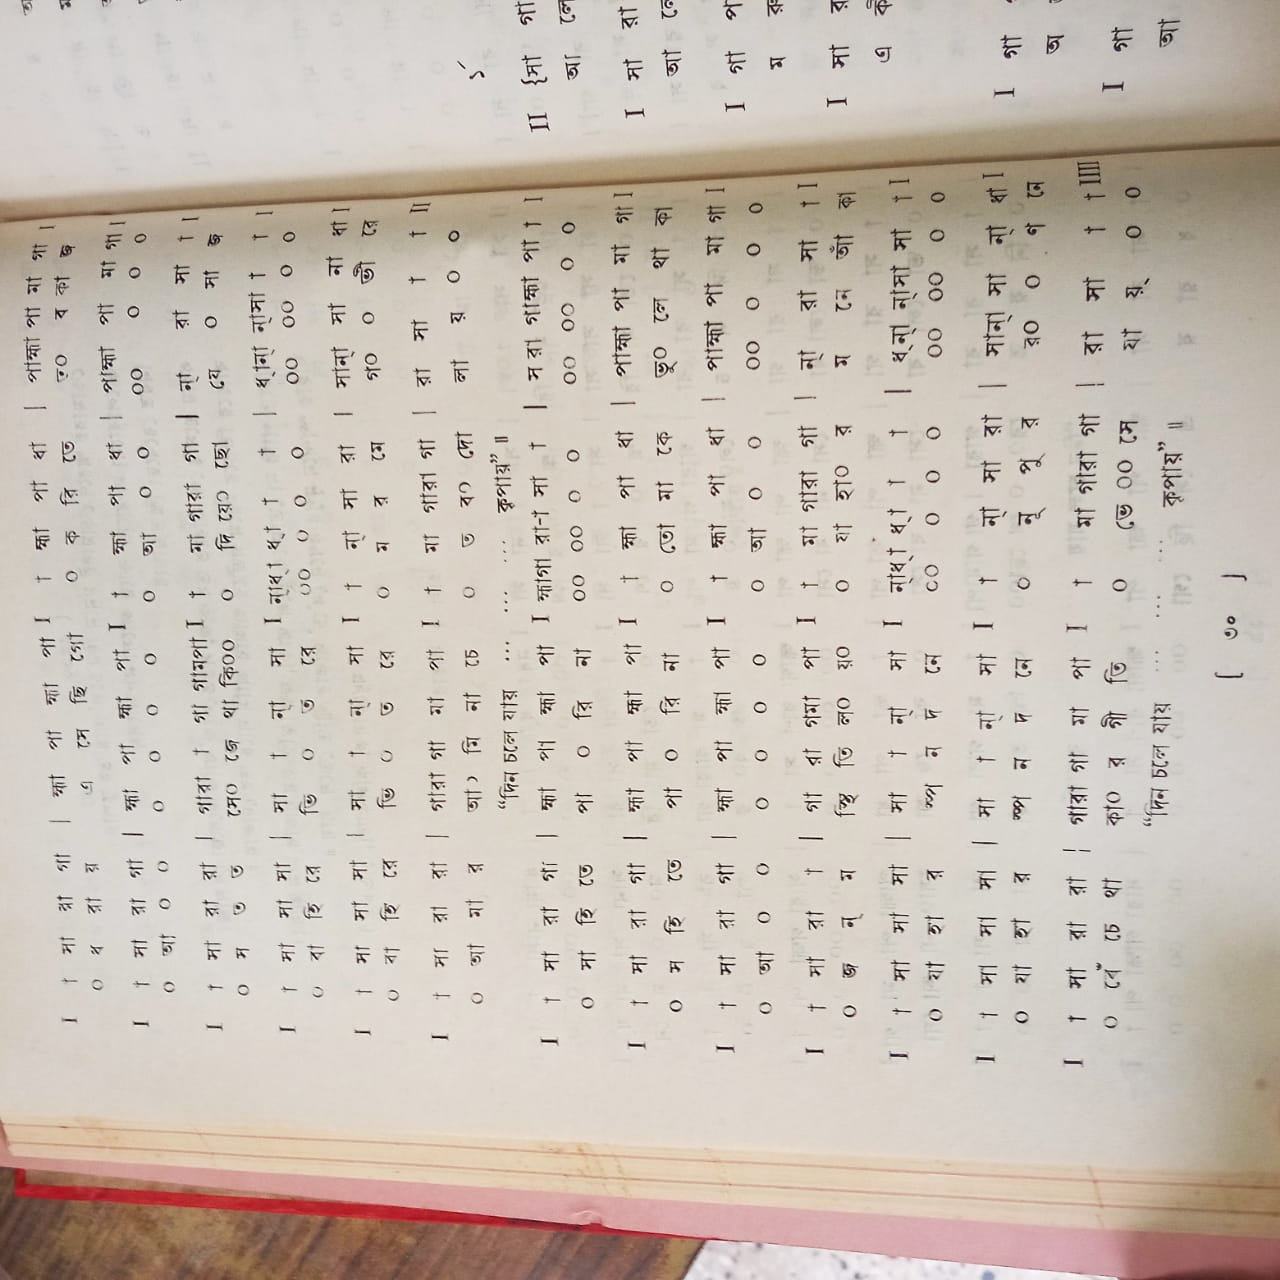 I † সা রা গা | হ্মা পা হ্মা পা I † হ্মা পা ধা | পাহ্মা পা মা গা I
০ ধ রা য় এ সে ছি গো ০ ক রি তে ভু০ ব কা জ
I † সা রা গা | হ্মা পা হ্মা পা I † হ্মা পা ধা | পাহ্মা পা মা গা I
০ আ ০ ০ ০ ০ ০ ০ ০ আ ০ ০ ০০ ০ ০ ০
I † সা রা রা | গারা † গা গাহ্মপা I † মা গারা গা | ন্ রা সা † I
০ ম ত ত সে০ জে থা কি০০ ০ দি য়ো ছো যে ০ মা জ
I † সা সা সা | সা † ন্ সা I ন্ধ্ † ধ্ † † | ধ্ন্ ন্সা † † I
০ বা হি রে ভি ০ ত রে ০০ ০ ০ ০ ০০ ০০ ০ ০
I † সা সা সা | সা † ন্ সা I † ন্ সা রা | সান্ সা না ধা I
০ বা হি রে ভি ০ ত রে ০ ম র মে গ০ ০ ভী রে
I † সা রা রা | গারা গা মা পা I † মা গারা গা | রা সা † † II
০ আ মা র আ০ মি না চে ০ ত ব০ দো লা য় ০ ০
“দিন চলে যায় ... ... ... কৃপায়” ॥
I † সা রা গা | হ্মা পা হ্মা পা I হ্মাগা রা-া সা † | সরা গাহ্মা পা † I
০ মা হি তে পা ০ রি না ০০ ০০ ০ ০ ০০ ০০ ০ ০
I † সা রা গা | হ্মা পা হ্মা পা I † হ্মা পা ধা | পাহ্মা পা মা গা I
০ ম হি তে পা ০ রি না ০ তো মা কে ভু০ লে থা কা
I † সা রা গা | হ্মা পা হ্মা পা I † হ্মা পা ধা | পাহ্মা পা মা গা I
০ আ ০ ০ ০ ০ ০ ০ ০ আ ০ ০ ০০ ০ ০ ০
I † সা রা † | গা রা গমা পা I † মা গারা গা | ন্ রা সা † I
০ জ ন্ ম স্থি তি ল০ য়০ ০ যা হা০ র ম নে আঁ কা
I † সা সা সা | সা † ন্ সা I ন্ধ্ † ধ্ † † | ধ্ন্ ন্সা সা † I
০ যা হা র স্প ন দ নে ০০ ০ ০ ০ ০০ ০০ ০ ০
I † সা সা সা | সা † ন্ সা I † ন্ সা রা | সান্ সা ন্ ধা I
০ যা হা র স্প ন দ নে ০ নূ পু র র০ ০ ণ নে
I † সা রা রা | গারা গা মা পা I † মা গারা গা | রা সা † † IIII
০ বেঁ চে থা কা০ র গী তি ০ ভে ০০ সে যা য়্ ০ ০
“দিন চলে যায় ... ... ... কৃপায়” ॥
[ ৩০ ]
১´
II {সা গা
আ লে
I সা রা
I গা প
ম
I সা র
এ
I গা
অ
I গা
আ